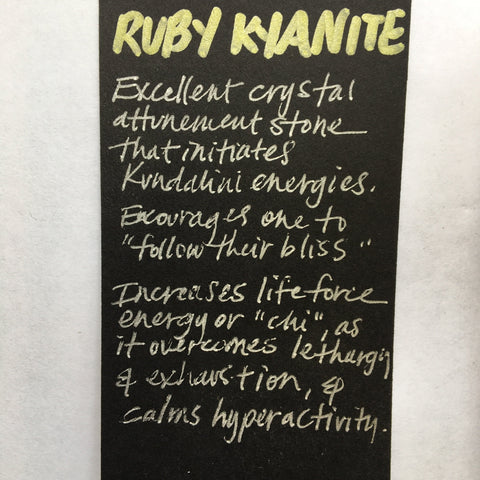 RUBY KYANITE
Excellent crystal
attunement stone
that initiates
Kundalini energies.
Encourages one to
"follow their bliss"
Increases life force
energy or "chi", as
it overcomes lethargy
& exhaustion, &
calms hyperactivity.